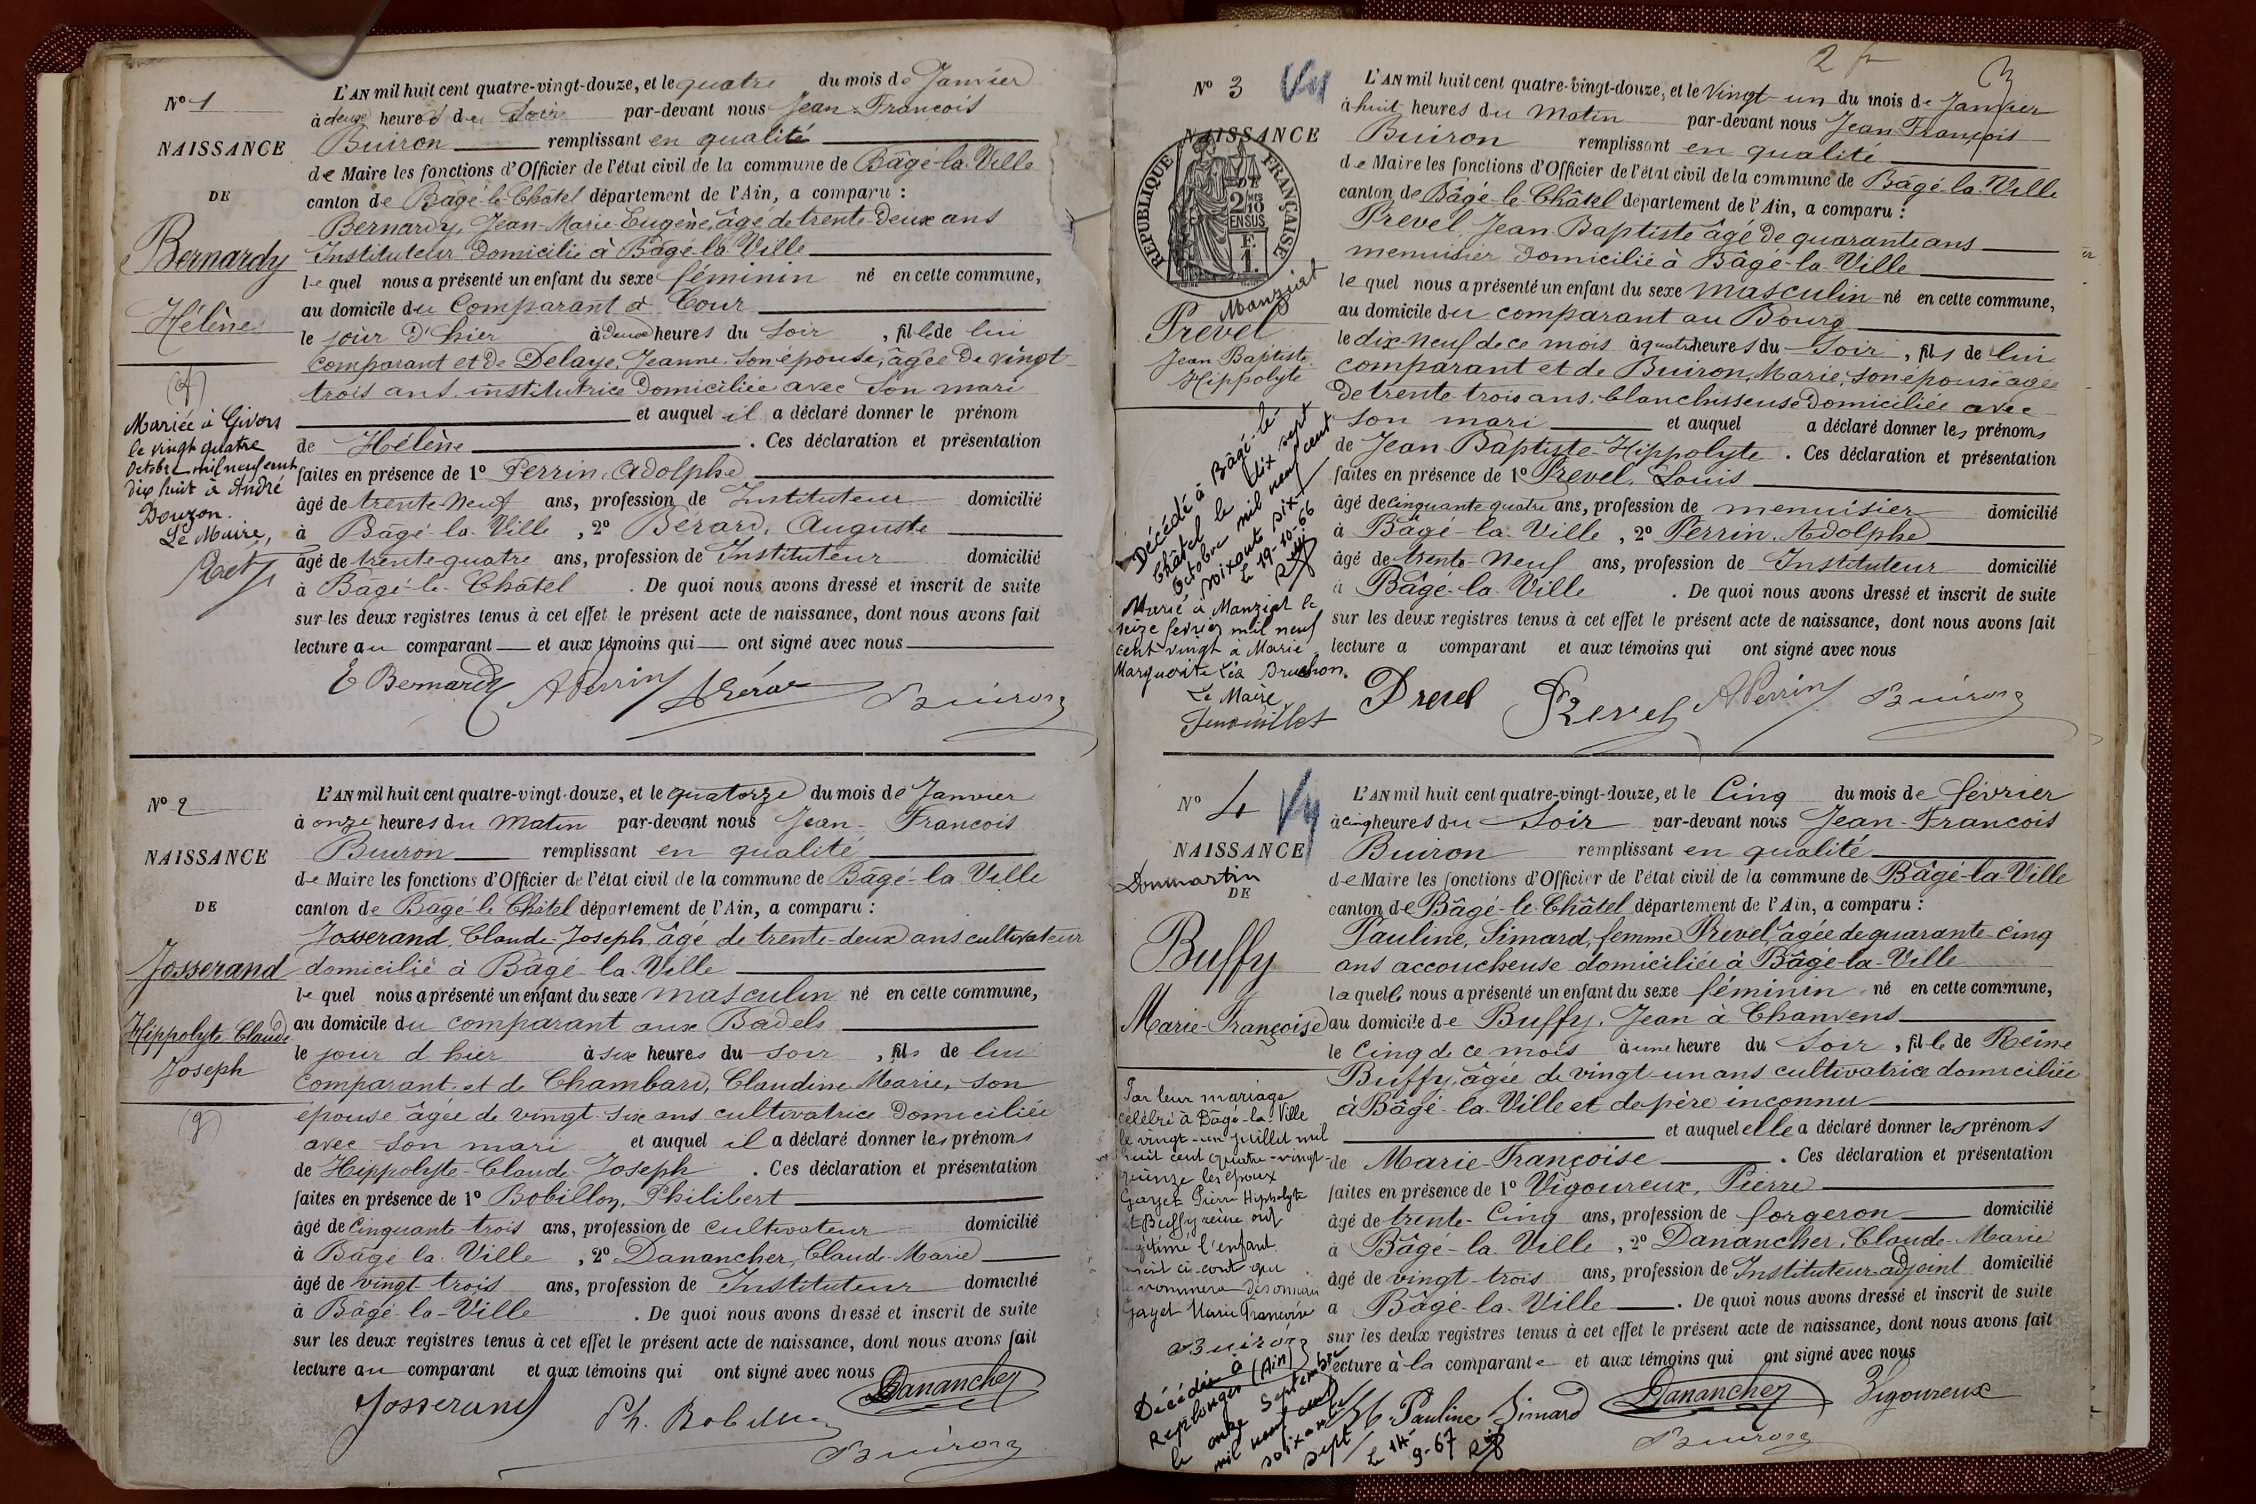 N° 1
NAISSANCE
DE
Bernardy
Hélène
Mariée à Givors
le vingt quatre
Octobre mil neuf cent
dix huit à André
Bouzon.
Le Maire,
L'AN mil huit cent quatre-vingt-douze, et le quatre du mois de Janvier
à deux heures du Soir par-devant nous Jean-François
Buiron remplissant en qualité
de Maire les fonctions d'Officier de l'état civil de la commune de Bâgé-la-Ville
canton de Bâgé-le-Châtel département de l'Ain, a comparu :
Bernardy, Jean-Marie-Eugène, âgé de trente-deux ans
Instituteur domicilié à Bâgé-la-Ville
le quel nous a présenté un enfant du sexe féminin né en cette commune,
au domicile du Comparant à Cour
le jour d'hier à deux heures du soir, fille de lui
comparant et de Delaye, Jeanne son épouse, âgée de vingt-
trois ans institutrice domiciliée avec son mari
et auquel il a déclaré donner le prénom
de Hélène. Ces déclaration et présentation
faites en présence de 1° Perrin, Adolphe
âgé de trente-neuf ans, profession de Instituteur domicilié
à Bâgé-la-Ville, 2° Bérard, Auguste
âgé de trente-quatre ans, profession de Instituteur domicilié
à Bâgé-le-Châtel. De quoi nous avons dressé et inscrit de suite
sur les deux registres tenus à cet effet le présent acte de naissance, dont nous avons fait
lecture au comparant et aux témoins qui ont signé avec nous
E Bernardy APerrin Bérard Buiron
N° 2
NAISSANCE
DE
Josserand
Hippolyte-Claude
Joseph
L'AN mil huit cent quatre-vingt-douze, et le quatorze du mois de Janvier
à onze heures du matin par-devant nous Jean-François
Buiron remplissant en qualité
de Maire les fonctions d'Officier de l'état civil de la commune de Bâgé-la-Ville
canton de Bâgé-le-Châtel département de l'Ain, a comparu :
Josserand, Claude-Joseph, âgé de trente-deux ans cultivateur
domicilié à Bâgé-la-Ville
le quel nous a présenté un enfant du sexe masculin né en cette commune,
au domicile du comparant aux Badels
le jour d'hier à six heures du soir, fils de lui
comparant et de Chambard, Claudine-Marie, son
épouse âgée de vingt-six ans cultivatrice domiciliée
avec son mari et auquel il a déclaré donner les prénoms
de Hippolyte-Claude-Joseph. Ces déclaration et présentation
faites en présence de 1° Bobillon, Philibert
âgé de cinquante-trois ans, profession de cultivateur domicilié
à Bâgé-la-Ville, 2° Danancher, Claude-Marie
âgé de vingt-trois ans, profession de Instituteur domicilié
à Bâgé-la-Ville. De quoi nous avons dressé et inscrit de suite
sur les deux registres tenus à cet effet le présent acte de naissance, dont nous avons fait
lecture au comparant et aux témoins qui ont signé avec nous
Josserand Ph. Bobillon Danancher
Buiron
2 3
N° 3
NAISSANCE
DE
REPUBLIQUE FRANÇAISE
2/10 EN SUS
F. 1.
Manziat
Prevel
Jean Baptiste
Hippolyte
Décédé à Bâgé-le
Châtel le dix sept
Octobre mil neuf cent
soixante six
Le 19-10-66
Marié à Manziat le
seize février mil neuf
cent vingt à Marie
Marguerite Léa Bruchon.
Le Maire
L'AN mil huit cent quatre-vingt-douze, et le vingt-un du mois de Janvier
à huit heures du Matin par-devant nous Jean-François
Buiron remplissant en qualité
de Maire les fonctions d'Officier de l'état civil de la commune de Bâgé-la-Ville
canton de Bâgé-le-Châtel département de l'Ain, a comparu :
Prevel, Jean Baptiste âgé de quarante ans
menuisier domicilié à Bâgé-la-Ville
le quel nous a présenté un enfant du sexe masculin né en cette commune,
au domicile du comparant au Bourg
le dix-neuf de ce mois à quatre heures du soir, fils de lui
comparant et de Buiron, Marie, son épouse âgée
de trente-trois ans, blanchisseuse domiciliée avec
son mari et auquel a déclaré donner les prénoms
de Jean-Baptiste-Hippolyte. Ces déclaration et présentation
faites en présence de 1° Prevel, Louis
âgé de cinquante quatre ans, profession de menuisier domicilié
à Bâgé-la-Ville, 2° Perrin, Adolphe
âgé de trente-neuf ans, profession de Instituteur domicilié
à Bâgé-la-Ville. De quoi nous avons dressé et inscrit de suite
sur les deux registres tenus à cet effet le présent acte de naissance, dont nous avons fait
lecture a comparant et aux témoins qui ont signé avec nous
Prevel Prevel APerrin Buiron
N° 4
NAISSANCE
Dommartin
DE
Buffy
Marie-Françoise
Par leur mariage
célébré à Bâgé-la-Ville
le vingt-un juillet mil
huit cent quatre-vingt-
quinze les époux
Gayet Pierre Hippolyte
et Buffy reine ont
légitimé l'enfant
inscrit ci-contre qui
se nommera désormais
Gayet Marie Françoise
Buiron
Décédée à
Replonges (Ain)
le onze Septembre
mil neuf cent
soixante
sept
Le 14-
9-67
L'AN mil huit cent quatre-vingt-douze, et le Cinq du mois de février
à cinq heures du Soir par-devant nous Jean-François
Buiron remplissant en qualité
de Maire les fonctions d'Officier de l'état civil de la commune de Bâgé-la-Ville
canton de Bâgé-le-Châtel département de l'Ain, a comparu :
Pauline, Simard, femme Prevel, âgée de quarante-cinq
ans accoucheuse domiciliée à Bâgé-la-Ville
laquelle nous a présenté un enfant du sexe féminin né en cette commune,
au domicile de Buffy, Jean à Chanvens
le Cinq de ce mois à une heure du soir, fille de Reine
Buffy, âgée de vingt-un ans cultivatrice domiciliée
à Bâgé-la-Ville et de père inconnu
et auquel elle a déclaré donner les prénoms
de Marie-Françoise. Ces déclaration et présentation
faites en présence de 1° Vigoureux, Pierre
âgé de trente-cinq ans, profession de forgeron domicilié
à Bâgé-la-Ville, 2° Danancher, Claude-Marie
âgé de vingt-trois ans, profession de Instituteur-adjoint domicilié
a Bâgé-la-Ville. De quoi nous avons dressé et inscrit de suite
sur les deux registres tenus à cet effet le présent acte de naissance, dont nous avons fait
lecture à la comparante et aux témoins qui ont signé avec nous
Pauline Simard Danancher Vigoureux
Buiron